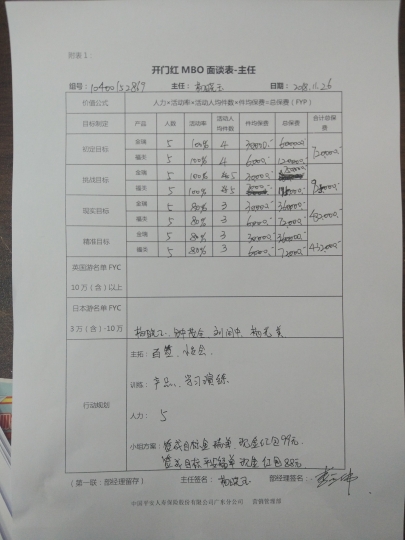 附表1：
开门红 MBO 面谈表-主任
组号：10400152869 主任： 日期：2018.11.26
价值公式 人力×活动率×活动人均件数×件均保费=总保费（FYP）
目标制定 产品 人数 活动率 活动人均件数 件均保费 总保费 合计总保费
初定目标 金瑞 5 100% 4 30000.- 600000.- 720000.-
福类 5 100% 4 6000.- 120000.-
挑战目标 金瑞 5 100% 5
福类 5 100% 5
现实目标 金瑞 5 80% 3 30000.- 360000.- 432000.-
福类 5 80% 3 6000.- 72000.-
精准目标 金瑞 5 80% 3 30000.- 360000.- 432000.-
福类 5 80% 3 6000.- 72000.-
英国游名单 FYC
10 万（含）以上
日本游名单 FYC
3 万（含）-10 万
行动规划
主拓：
训练：产品、学习演练
人力： 5
小组方案：达成目标金瑞单，现金红包99元
达成目标平安福单 现金红包88元
（第一联：部经理留存） 主任签名： 部经理签名：
中国平安人寿保险股份有限公司广东分公司 营销管理部